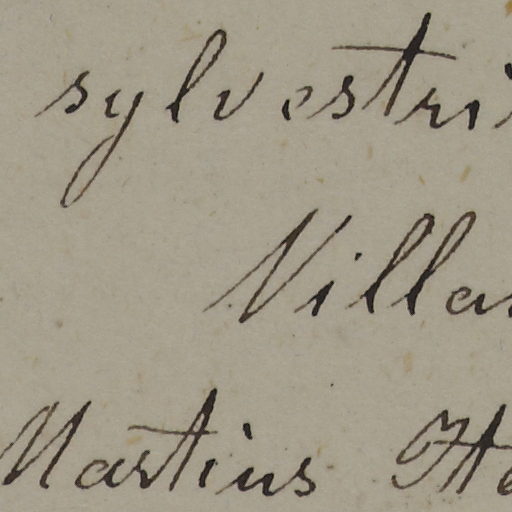 sylvestri
Villa
Martius He